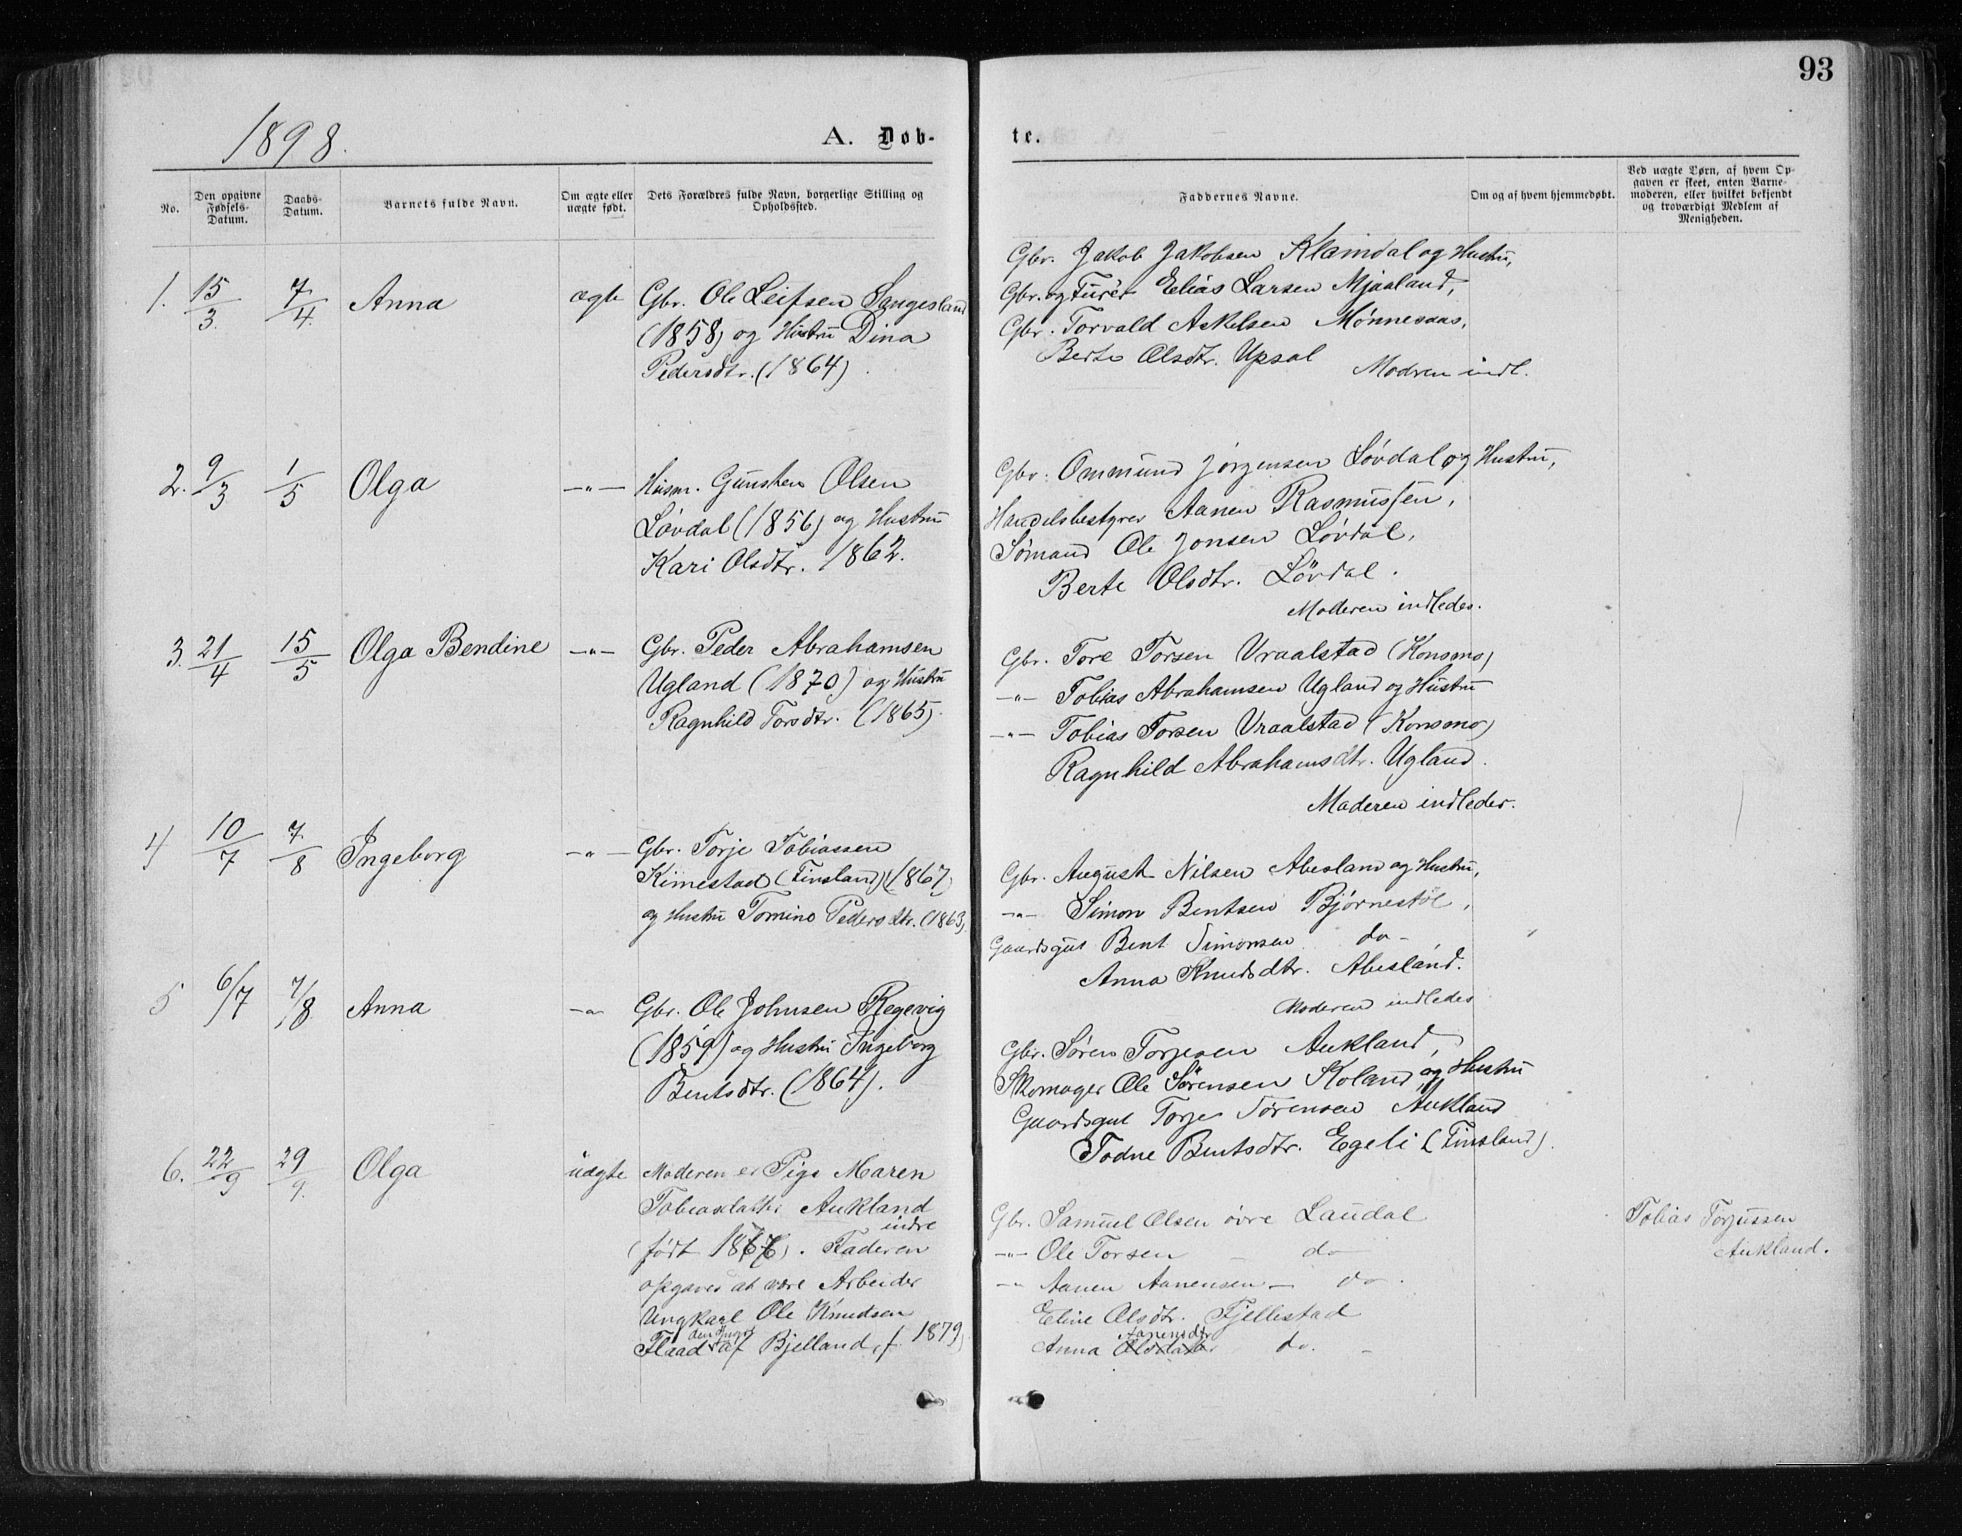 93
1898.
A. Døb-
te.
No.
Den opgivne Fødsels-Datum.
Daabs-Datum.
Barnets fulde Navn.
Om ægte eller uægte født.
Dets Forældres fulde Navn, borgerlige Stilling og Opholdssted.
Faddernes Navne.
Om og af hvem hjemmedøbt.
Ved uægte Børn, af hvem Opgaven er skeet, enten Barnemoderen, eller hvilket bekjendt og troværdigt Medlem af Menigheden.
1. 15/3. 7/4. Anna ægte Gbr. Ole Leifsen Sangesland
(1858) og Hustru Dina
Pedersdtr. (1864).
Gbr. Jakob Jakobsen Kleindal og Hustru,
Gbr. og Furér Elias Larsen Mjaaland,
Gbr. Torvald Askelsen Mønnesaas,
Berte Olsdtr. Upsal
Modren indl.
2. 9/3 1/5 Olga -"- Husm. Gunsten Olsen
Løvdal (1856) og Hustru
Kari Olsdtr. 1862.
Gbr. Ommund Jørgensen Løvdal og Hustru,
Handelsbestyrer Aanen Rasmussen,
Sømand Ole Jonsen Løvdal,
Berte Olsdtr. Løvdal.
Moderen indledes.
3. 21/4 15/5 Olga Bendine -"- Gbr. Peder Abrahamsen
Ugland (1870) og Hustru
Ragnhild Torsdtr. (1865).
Gbr. Tore Torsen Vraalstad (Konsmo)
-"- Tobias Abrahamsen Ugland og Hustru
-"- Tobias Torsen Vraalstad (Konsmo)
Ragnhild Abrahamsdtr. Ugland.
Moderen indledes.
4) 10/7 7/8 Ingeborg -"- Gbr. Torje Tobiassen
Kimestad (Finsland) (1867)
og Hustru Tomine Pedersdtr. (1863)
Gbr. August Nilsen Abesland og Hustru,
-"- Simon Bentsen Bjørnestøl,
Gaardsgut Bent Simonsen do-
Anna Knudsdtr. Abesland.
Moderen indledes
5 6/7 7/8 Anna -"- Gbr. Ole Johnsen Regevig
(1859) og Hustru Ingeborg
Bentsdtr. (1864).
Gbr. Søren Torjesen Aukland,
Skomager Ole Sørensen Holand og Hustru
Gaardsgut Torje Sørensen Aukland
Todne Bentsdtr. Egeli (Finsland).
6. 22/9 29/9. Olga uægte Moderen er Pige Maren
Tobiasdatter Aukland
indre
(født 1876). Faderen
opgaves at være Arbeider
Ungkarl Ole Knudsen
Flaad den Yngre af Bjelland, f. 1879)
Gbr. Samuel Olsen øvre Laudal
-"- Ole Torsen - do
-"- Aanen Aanensen - do.
Eline Olsdtr. Fjellestad
Aanensdtr.
Anna Olsdatter do.
Tobias Torjussen
Aukland.